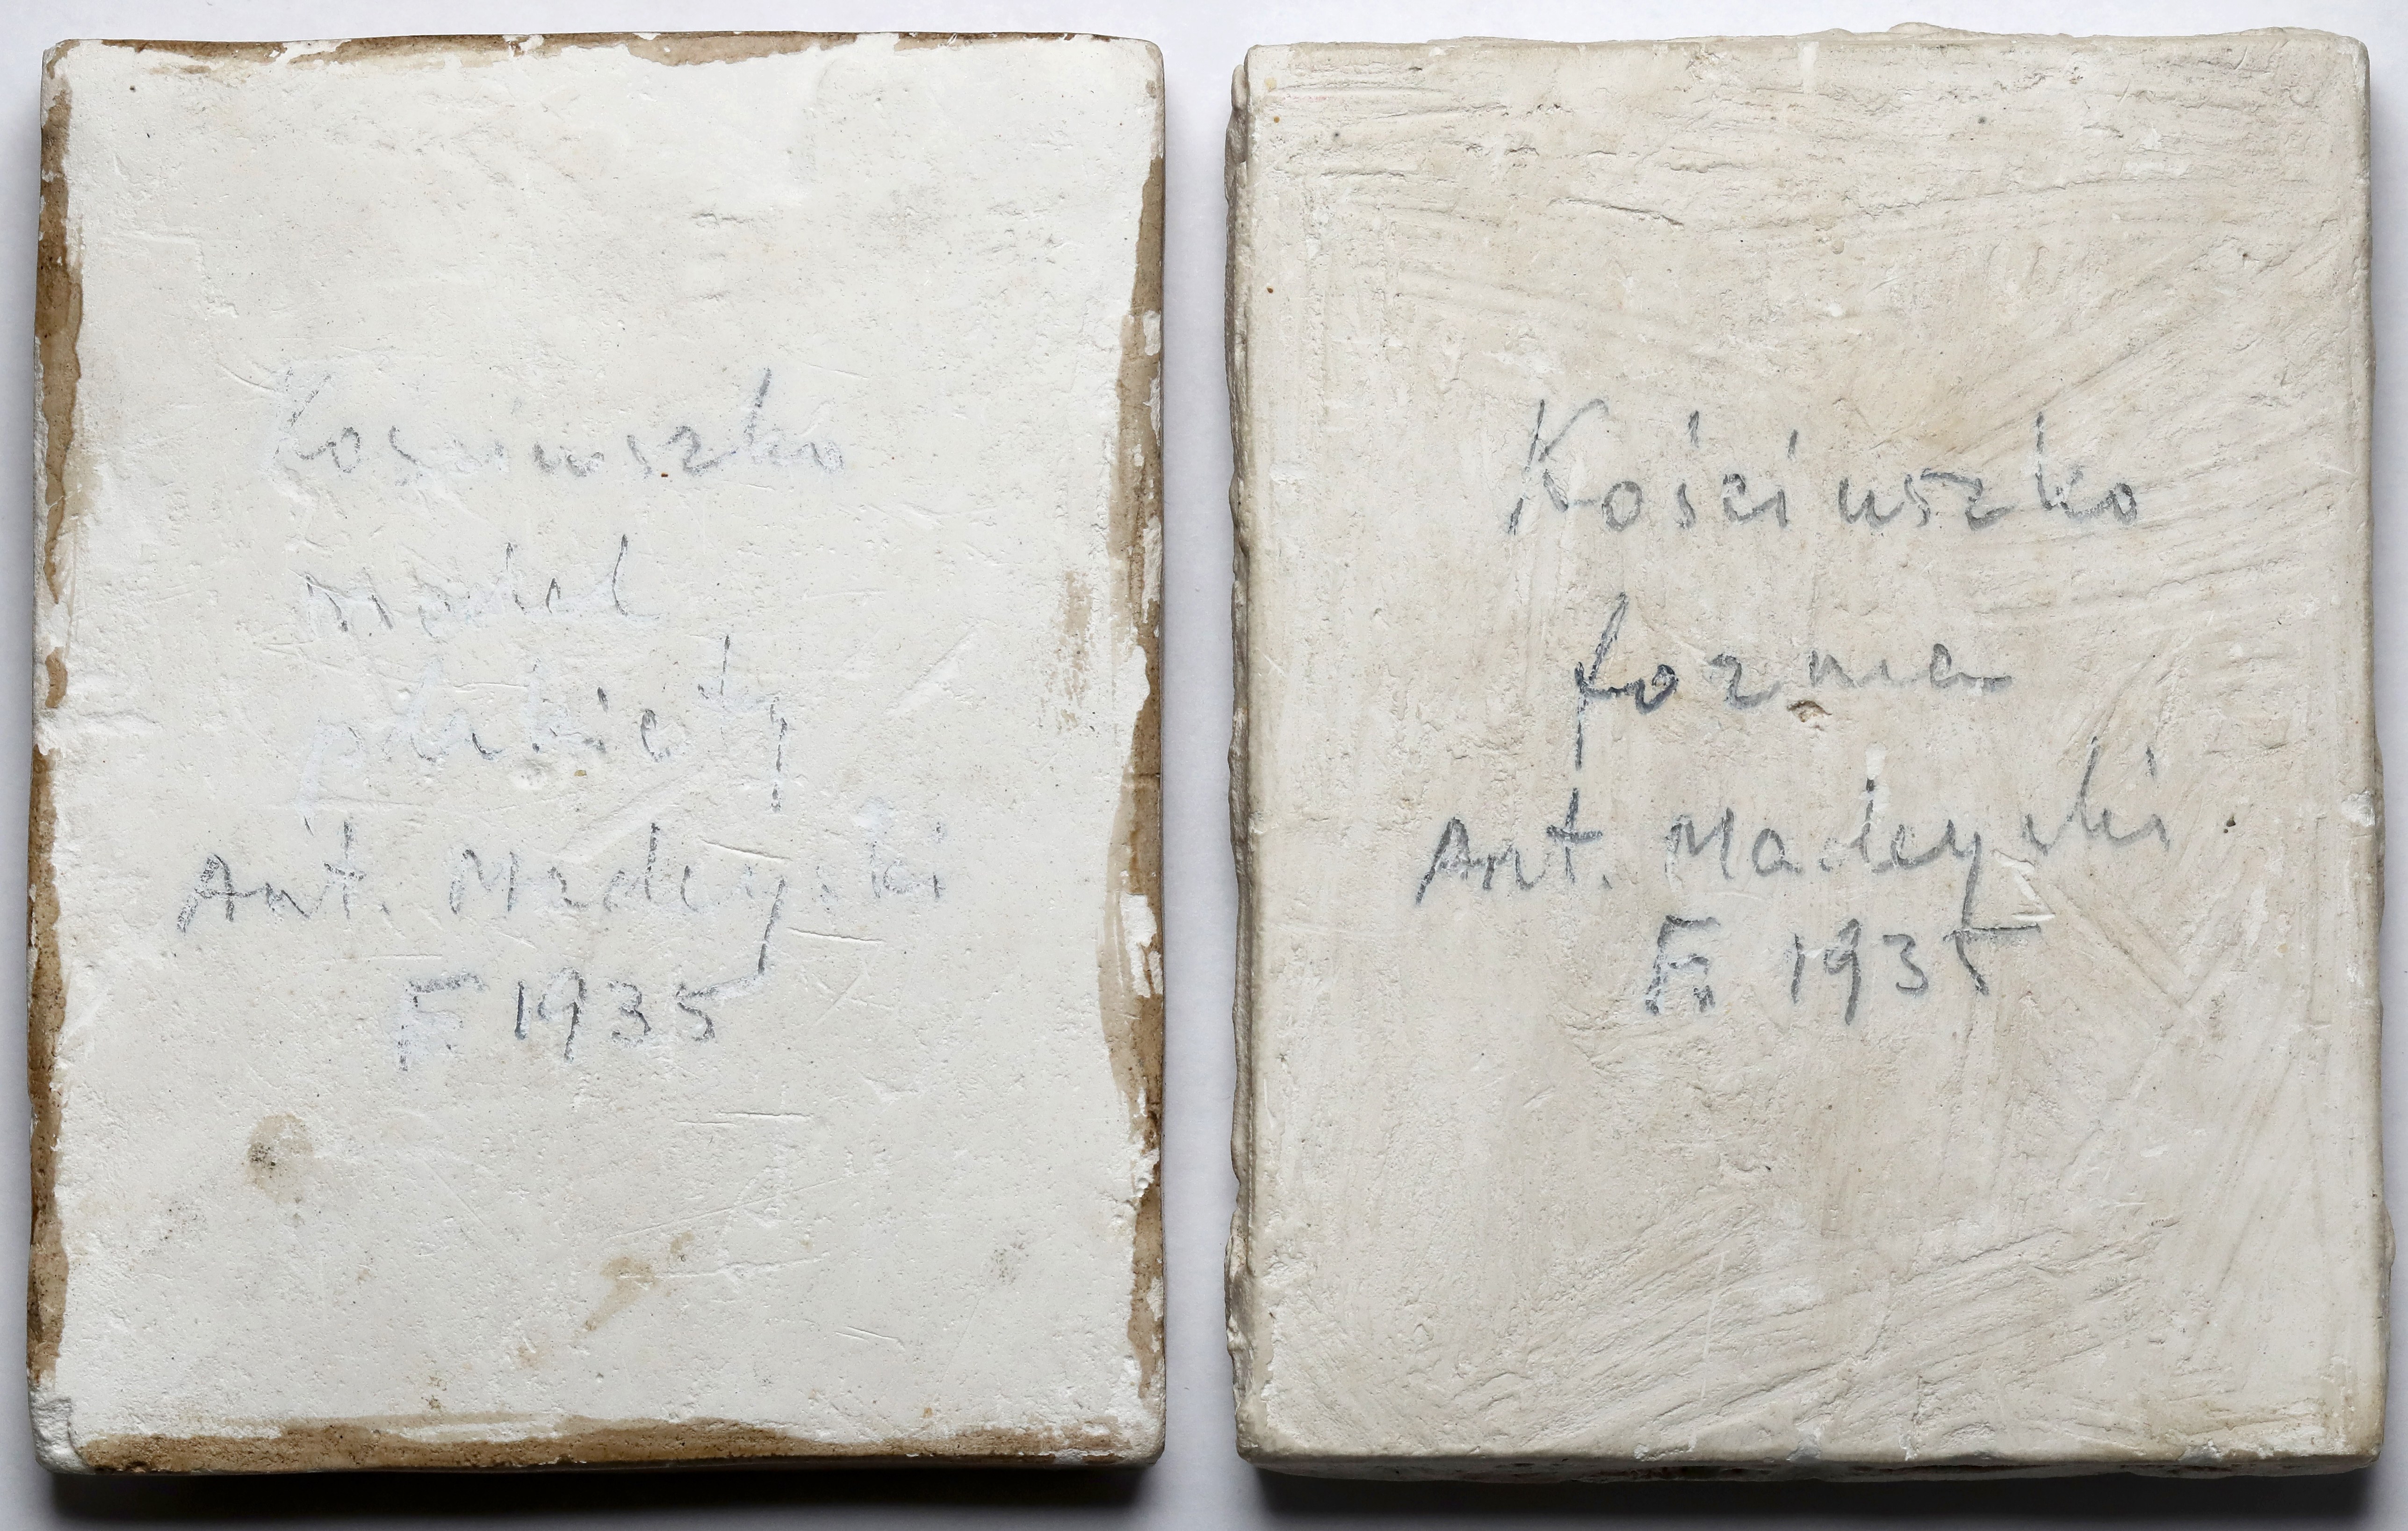 Kosciuszko
model
plakiety
Ant. Madeyski
1935
Kościuszko
forma
Ant. Madeyski
1935